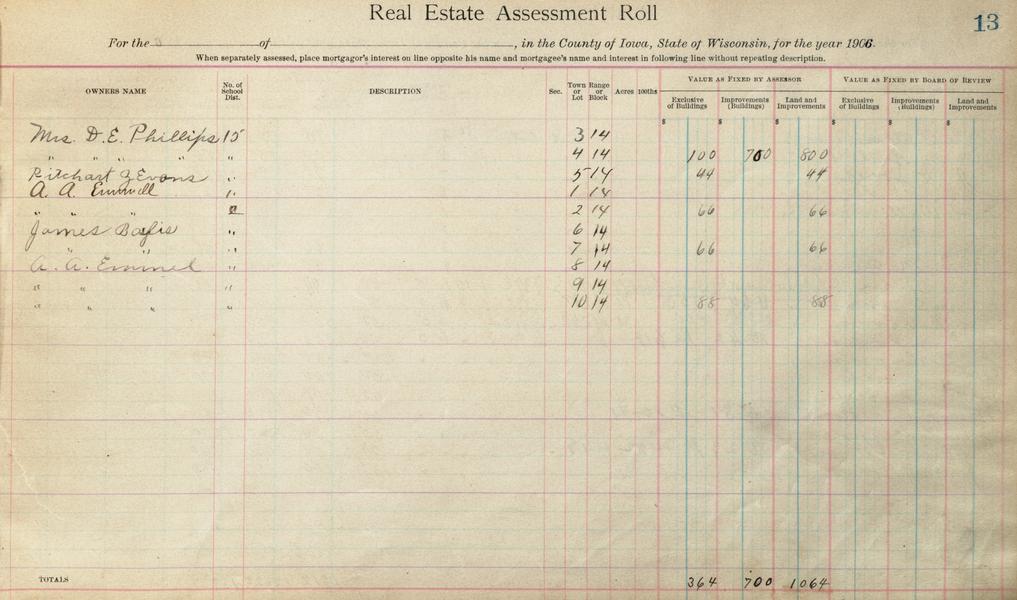 Real Estate Assessment Roll
13
For the of , in the County of Iowa, State of Wisconsin, for the year 1906.
When separately assessed, place mortgagor's interest on line opposite his name and mortgagee's name and interest in following line without repeating description.
OWNERS NAME No. of School Dist. DESCRIPTION Sec. Town or Lot Range or Block Acres 100ths VALUE AS FIXED BY ASSESSOR VALUE AS FIXED BY BOARD OF REVIEW
Exclusive of Buildings Improvements (Buildings) Land and Improvements Exclusive of Buildings Improvements (Buildings) Land and Improvements
$ $ $ $ $ $
Mrs. D. E. Phillips 15 3 14
" " " " " 4 14 100 700 800
Ritchart & Evans " 5 14 44 44
A. A. Emmell " 1 14
" " " 2 14 66 66
James " 6 14
" " " 7 14 66 66
A. A. Emmel " 8 14
" " " " 9 14
" " " " 10 14 88 88
TOTALS 364 700 1064